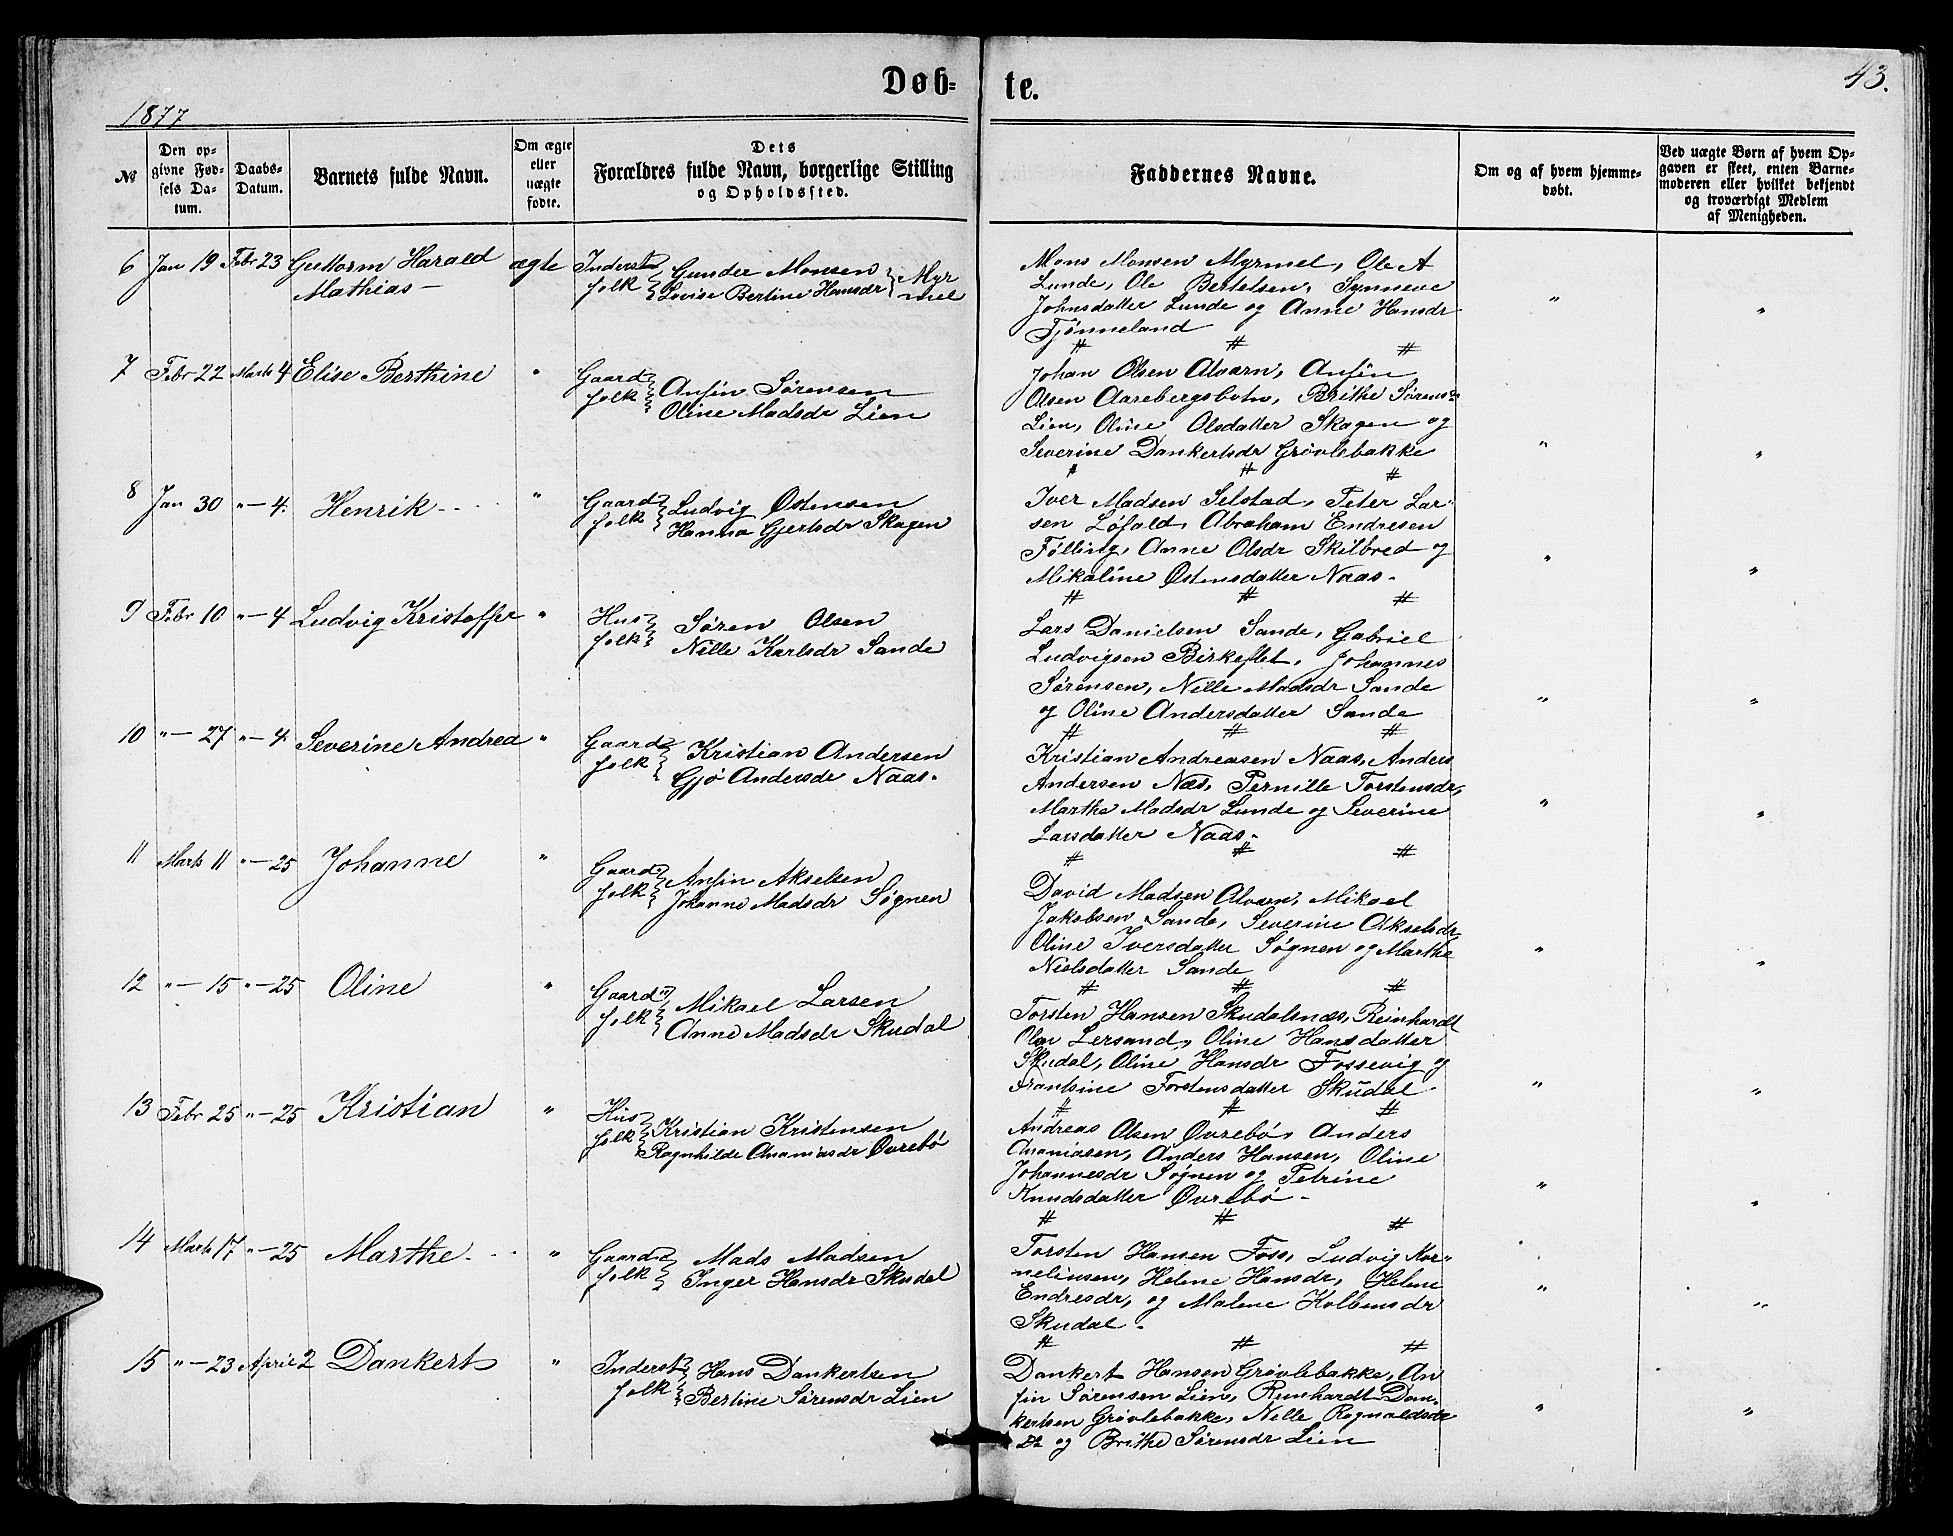 Døb=
te.
43.
1877
№
Den op=
givne Fød=
sels Da=
tum.
Daabs=
Datum.
Barnets fulde Navn.
Om ægte
eller
uægte
fødte.
Dets
Forældres fulde Navn, borgerlige Stilling
og Opholdssted.
Faddernes Navne.
Om og af hvem hjemme=
døbt.
Ved uægte Børn af hvem Op=
gaven er skeet, enten Barne=
moderen eller hvilket bekjendt
og troværdigt Medlem
af Menigheden.
6 Jan 19 Febr 23 Guttorm Harald ægte Inderst Gunder Monsen Myr
Mathias — folk Lovise Bertine Hansdr mel
Mons Monsen Myrmel, Ole A
Lunde, Ole Bertelsen, Synneve
Johnsdatter Lunde og Anne Hansdr " "
Tjønneland
# # #
7 Febr 22 Marts 4 Elise Berthine " Gaard Anfin Sørensen
folk Oline Madsdr Lien
Johan Olsen Alværn, Anfin
Olsen Aarebergsbotn, Brithe Sørensdr
Lien, Oline Olsdatter Skagen og
Severine Dankertsdr Grøvlebakke " "
# # #
8 Jan 30 " — 4. Henrik - - - " Gaard Ludvig Østensen
folk Hanna Gjertsdr Skagen
Iver Madsen Selstad, Peter Lar=
sen Løfald, Abraham Endresen
Følling, Anne Olsdr Skilbred og
Mikaline Østensdatter Naas. " "
# # #
9 Febr 10 " — 4 Ludvig Kristoffer " Hus Søren Olsen
folk Nille Karlsdr Sande
Lars Danielsen Sande, Gabriel
Ludvigsen Birkeflet, Johannes
Sørensen, Nille Madsdr Sande
og Oline Andersdatter Sande " "
# # #
10 " — 27 " — 4. Severine Andrea " Gaard Kristian Andersen
folk Gjø Andersdr Naas.
Kristian Andreasen Naas, Anders
Andersen Næs, Pernille Torstensdr,
Marthe Madsdr Lunde og Severine " "
Larsdatter Naas.
# # #
11 Marts 11 " — 25 Johanne " Gaard Anfin Akselsen
folk Johanne Madsdr Søgnen
David Madsen Alværn, Mikael
Jakobsen Sande, Severine Akselsdr
Oline Iversdatter Søgnen og Marthe " "
Nielsdatter Sande
# # #
12 " — 15 " — 25 Oline " Gaard Mikael Larsen
folk Anne Madsdr Skudal
Torsten Hansen Skudalsnæs, Reinhardt
Olsen Lersand, Oline Hansdatter
Skudal, Oline Hansdr Fossevig og
Frantsine Torstensdatter Skudal " "
# # #
13 Febr 25 " — 25 Kristian " Hus Kristian Kristensen
folk Ragnhilde Ananiasdr Øvrebø
Andreas Olsen Øvrebø, Anders
Ananiasen, Anders Hansen, Oline
Johannesdr Søgnen og Petrine
Knudsdatter Øvrebø - " "
# # #
14 Marts 17 " — 25 Marthe - - " Gaard Mads Madsen
folk Inger Hansdr Skudal
Torsten Hansen Foss, Ludvig Kor=
neliusen, Helene Hansdr, Helene
Endresdr, og Malene Kolbensdr " "
Skudal -
# # #
15 " — 23 April 2 Dankert " Inderst Hans Dankertsen
folk Bertine Sørensdr Lien
Dankert Hansen Grøvlebakke, An
fin Sørensen Lien, Reinhardt Dan=
kertsen Grøvlebakke, Nille Rognaldsdr " "
og Brithe Sørensdr Lien